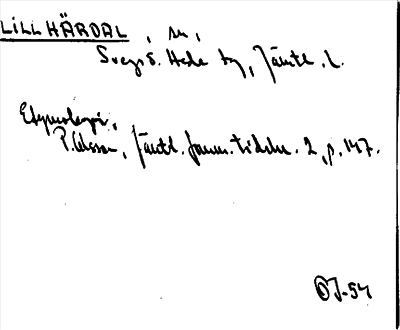 LILLHÄRDAL, sn,
Svegs o. Hede tg, Jämtl. l.
Etymologi.
P. Olsson, Jämtl. fornm. tidskr. 2, p. 147.
OJ-54